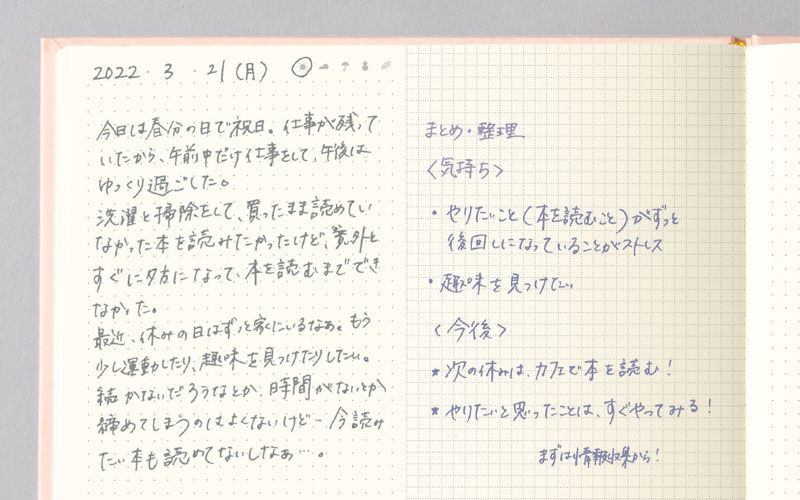 2022.3.21(月)
今日は春分の日で祝日。仕事が残って
いたから、午前中だけ仕事をして、午後は
ゆっくり過ごした。
洗濯と掃除をして、買ったまま読めてい
なかった本を読みたかったけど、意外と
すぐに夕方になって、本を読むまででき
なかった。
最近、休みの日はずっと家にいるなぁ。もう
少し運動したり、趣味を見つけたりしたい。
続かないだろうなとか、時間がないとか
締めてしまうのはよくないけど… 今読み
たい本も読めてないしなぁ…。
まとめ・整理
<気持ち>
・やりたいこと(本を読むこと)がずっと
後回しになっていることがストレス
・趣味を見つけたい
<今後>
★次の休みは、カフェで本を読む!
★やりたいと思ったことは、すぐやってみる!
まずは情報収集から!